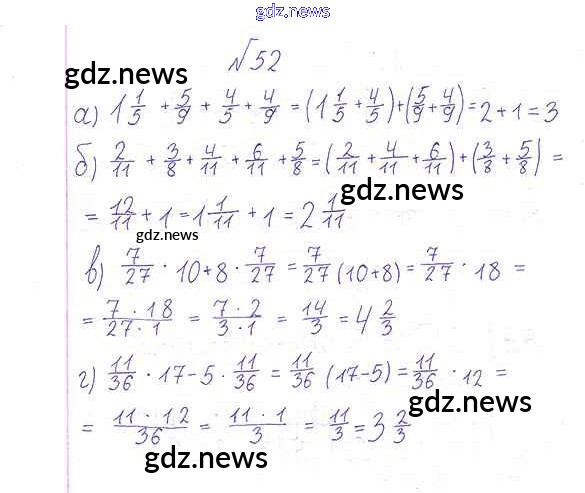 gdz.news
№52
gdz.news
а) 1 1/5 + 5/9 + 4/5 + 4/9 = (1 1/5 + 4/5) + (5/9 + 4/9) = 2 + 1 = 3
б) 2/11 + 3/8 + 4/11 + 6/11 + 5/8 = (2/11 + 4/11 + 6/11) + (3/8 + 5/8) =
gdz.news
= 12/11 + 1 = 1 1/11 + 1 = 2 1/11
gdz.news
в) 7/27 · 10 + 8 · 7/27 = 7/27 (10+8) = 7/27 · 18 =
= 7 · 18/27 · 1 = 7 · 2/3 · 1 = 14/3 = 4 2/3
г) 11/36 · 17 - 5 · 11/36 = 11/36 (17-5) = 11/36 · 12 =
gdz.news
= 11 · 12/36 = 11 · 1/3 = 11/3 = 3 2/3
gdz.news